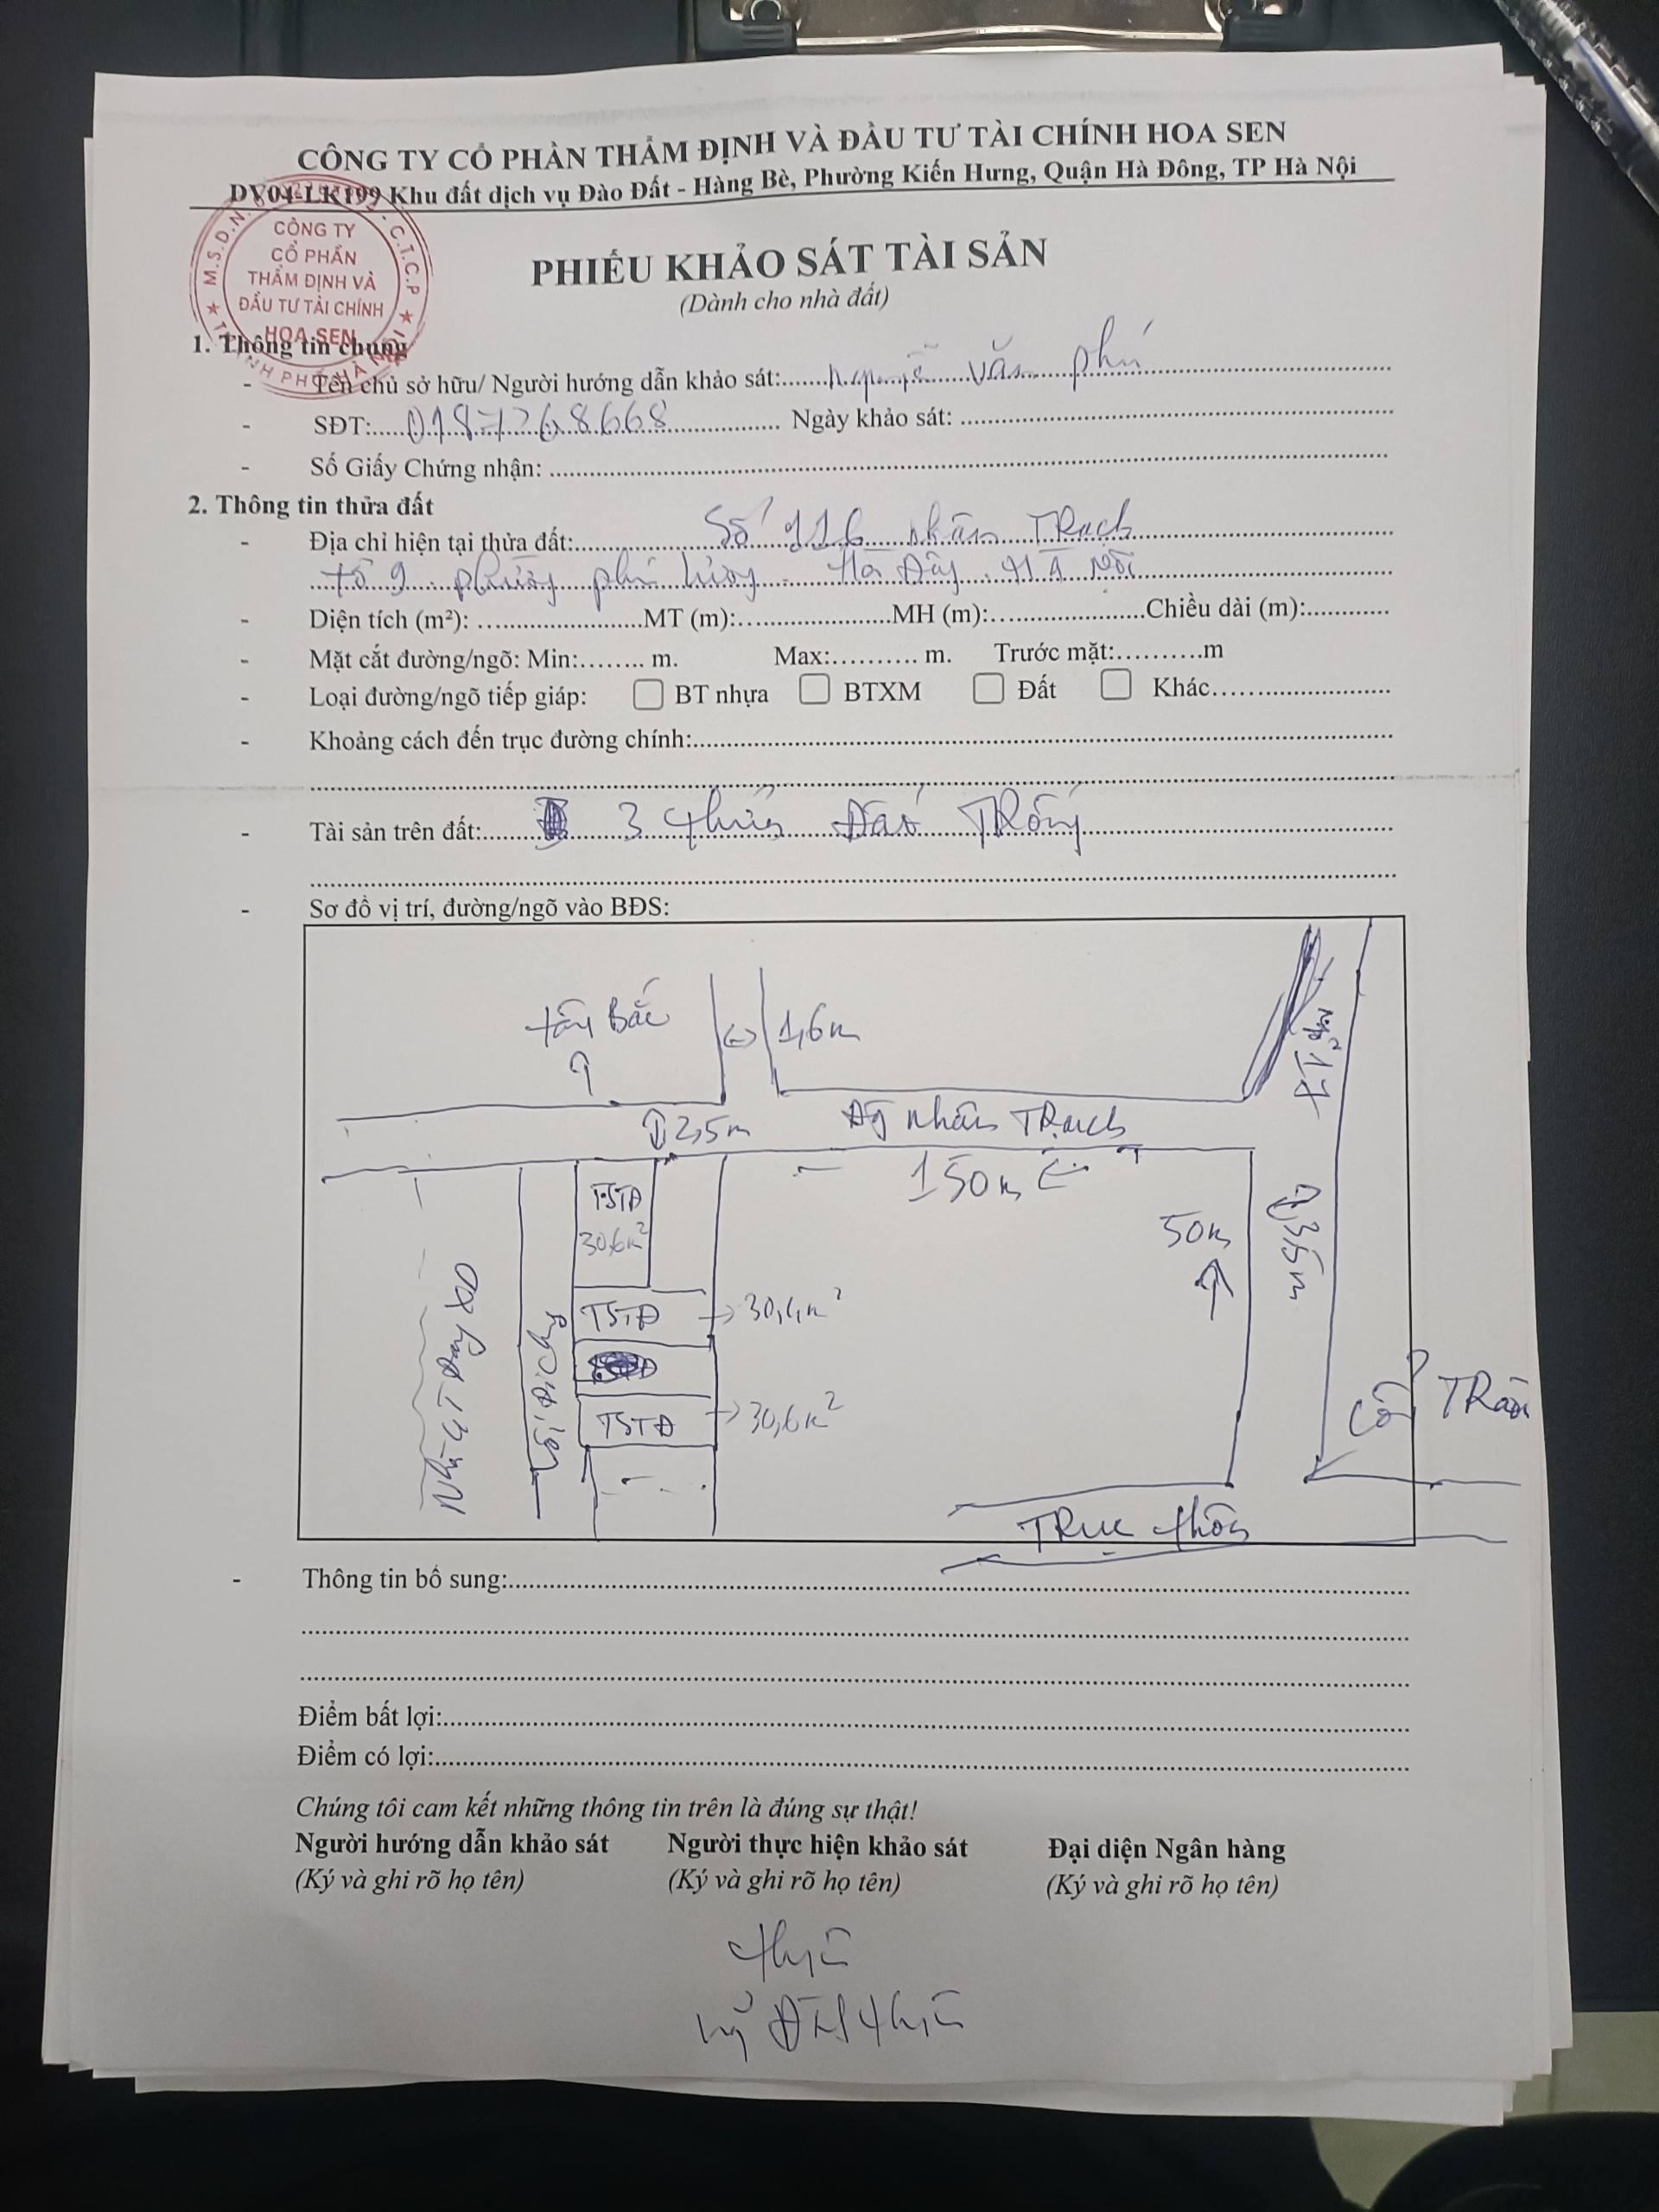 CÔNG TY CỔ PHẦN THẨM ĐỊNH VÀ ĐẦU TƯ TÀI CHÍNH HOA SEN
DV04-LK199 Khu đất dịch vụ Đào Đất - Hàng Bè, Phường Kiến Hưng, Quận Hà Đông, TP Hà Nội
CÔNG TY
CỔ PHẦN
THẨM ĐỊNH VÀ
ĐẦU TƯ TÀI CHÍNH
HOA SEN
PHIẾU KHẢO SÁT TÀI SẢN
(Dành cho nhà đất)
1. Thông tin chung
- Tên chủ sở hữu/ Người hướng dẫn khảo sát: Nguyễn văn phú
- SĐT: Ngày khảo sát:
- Số Giấy Chứng nhận:
2. Thông tin thửa đất
- Địa chỉ hiện tại thửa đất: Số 116 nhân TRạch
tổ 9 phường phú lương - Hà Đông - Hà Nội
- Diện tích (m²): MT (m): MH (m): Chiều dài (m):
- Mặt cắt đường/ngõ: Min: m. Max: m. Trước mặt: m
- Loại đường/ngõ tiếp giáp: BT nhựa BTXM Đất Khác
- Khoảng cách đến trục đường chính:
- Tài sản trên đất: 3 thửa Đất TRống
- Sơ đồ vị trí, đường/ngõ vào BĐS:
tây Bắc
1,6m
Ngõ 17
2,5m
Đg Nhân TRạch
150m
TSTĐ
30,6m²
50m
3,5m
TSTĐ
30,4m²
TSTĐ
30,6m²
Lối Đi Chung
Cổ TRai
TRục thôn
- Thông tin bổ sung:
Điểm bất lợi:
Điểm có lợi:
Chúng tôi cam kết những thông tin trên là đúng sự thật!
Người hướng dẫn khảo sát Người thực hiện khảo sát Đại diện Ngân hàng
(Ký và ghi rõ họ tên) (Ký và ghi rõ họ tên) (Ký và ghi rõ họ tên)